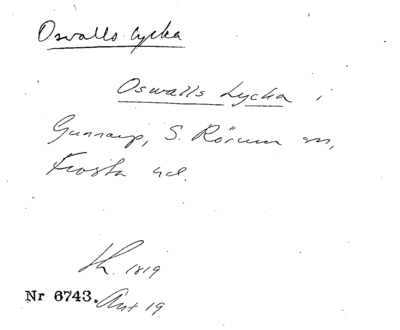 Oswalls lycka
Oswalls Lycka i
Gunnarp, S. Rörum sn,
Frosta hd.
Th. 1819
Nr 6743. Akt 19